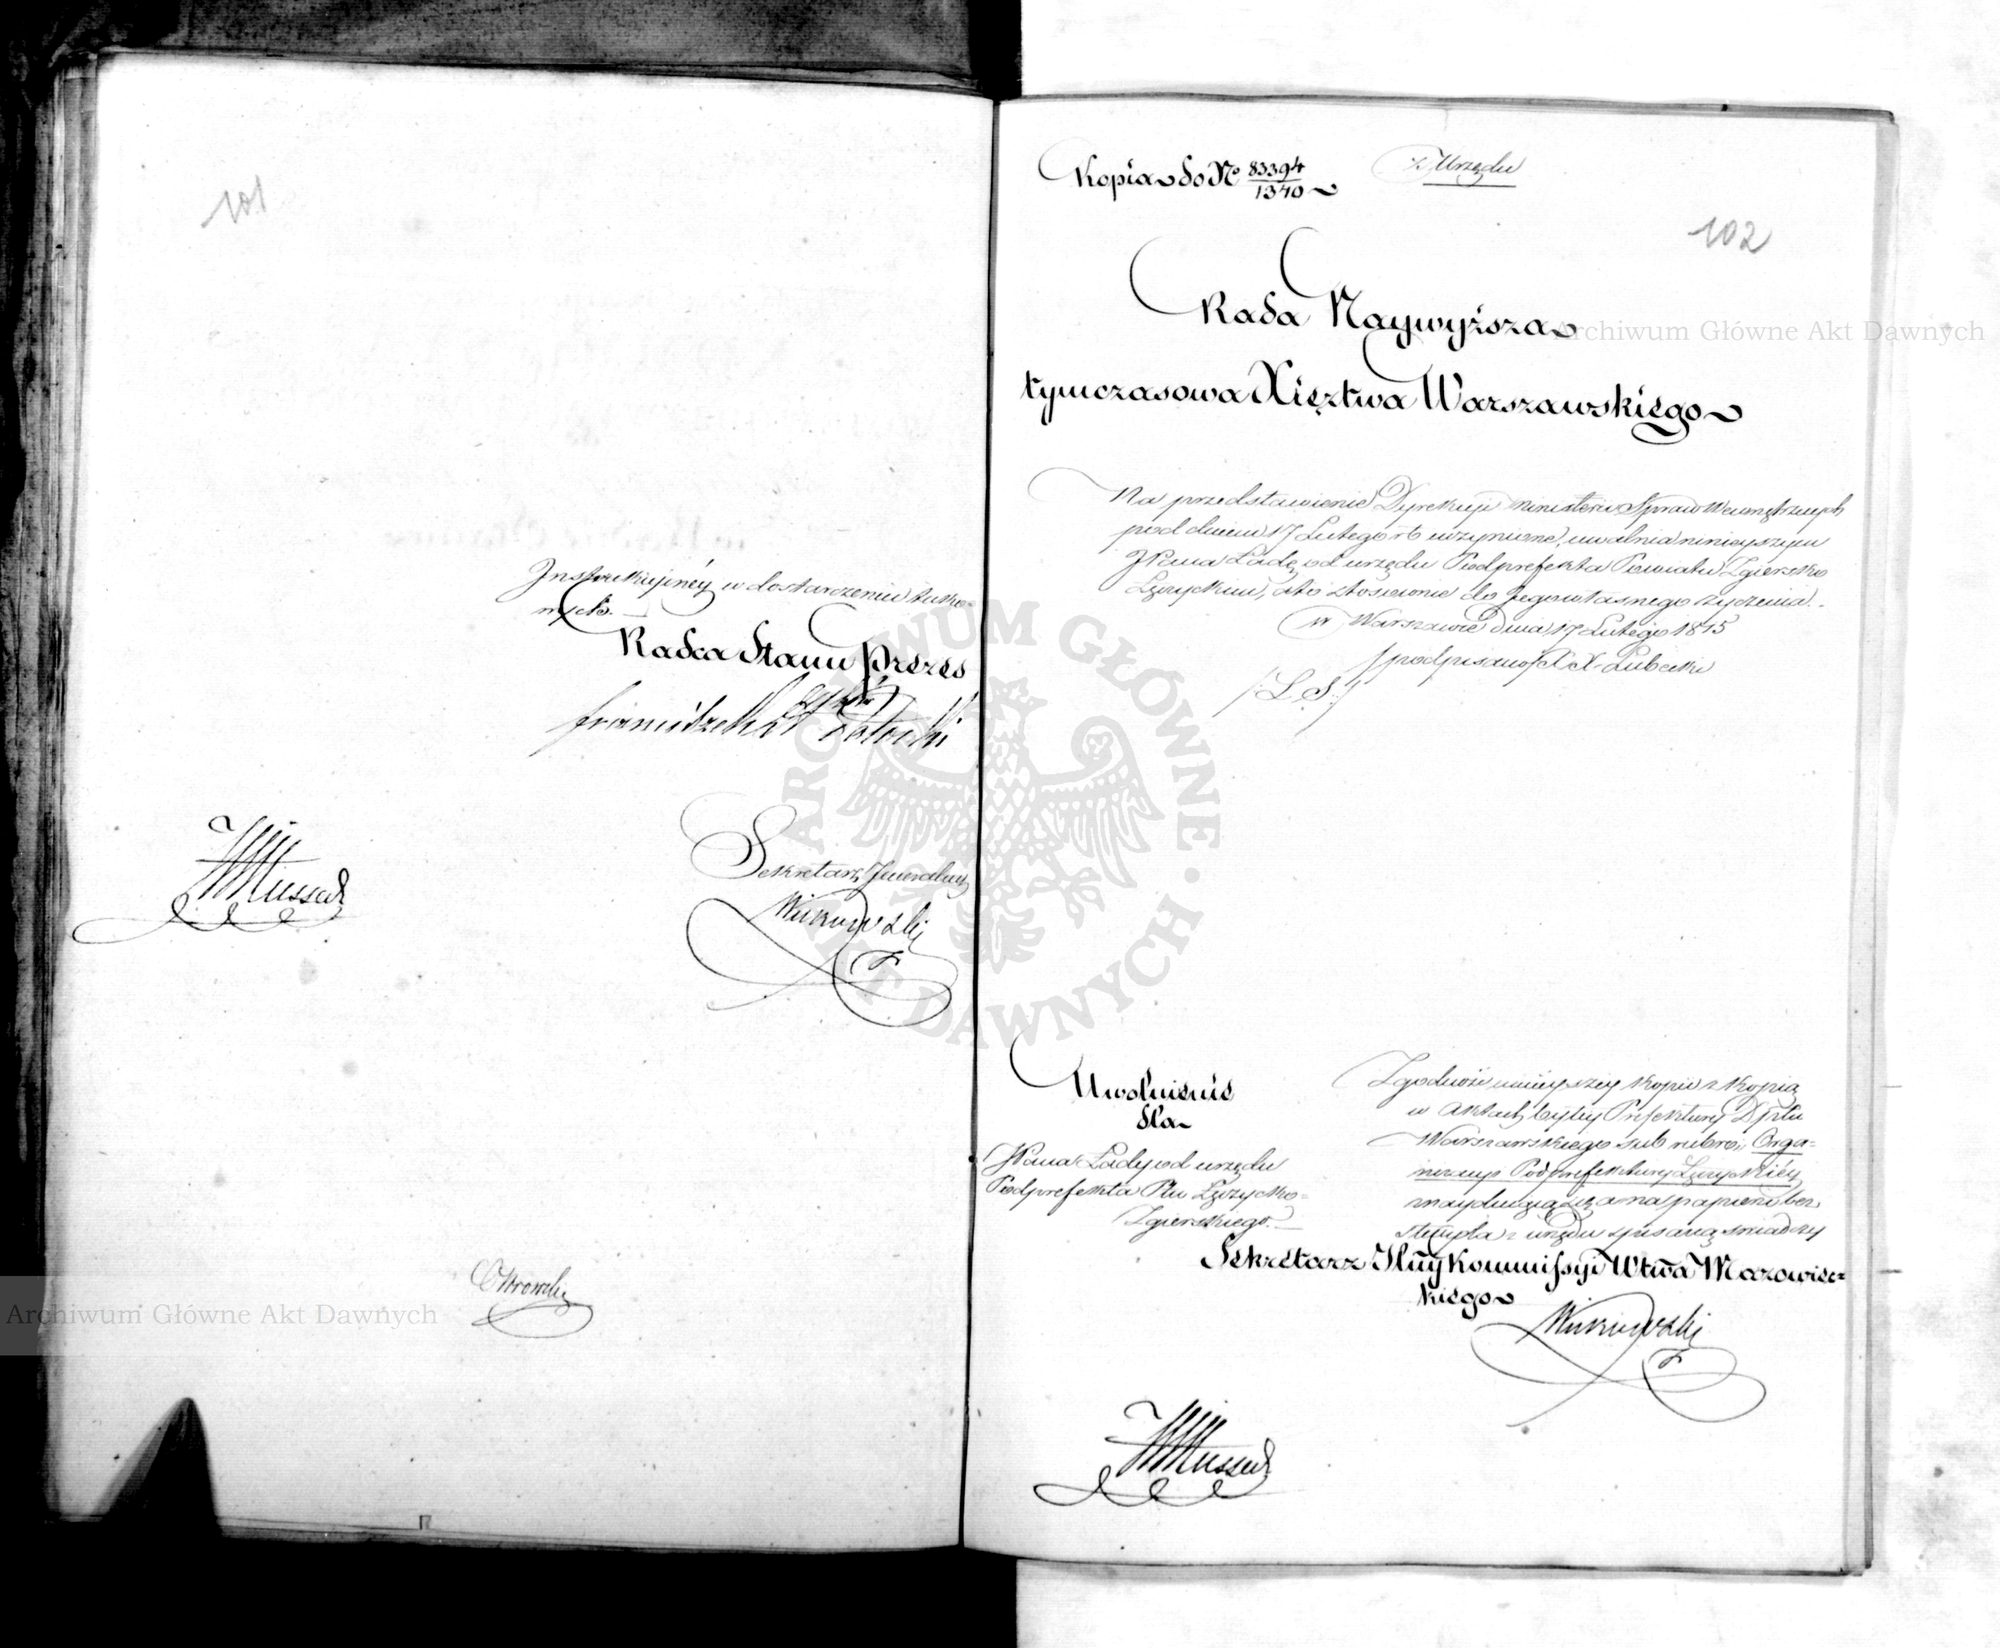 101
Instrukcyinéy w dostarczeniu tako-
wych.
Radca Stanu Prezes
Sekretarz Jeneralny
Kopia do No 83394/1370
z Urzędu
102
Rada Naywyższa
tymczasowa Xięztwa Warszawskiégo
Na przedstawienie Dyrekcyi Ministeriu Spraw Wewnętrznych
pod dniem 17 Lutego rb uczynione, uwalnia ninieyszym
JPana Ładę od urzędu Podprefekta Powiatu Zgiersko
Łęczyckiego, a to stosownie do jego własnego życzenia.
w Warszawie dnia 17 Lutego 1815
/podpisano/ X X Lubecki
/L. S./
Uwolnienié
dla
JPana Łady od urzędu
Podprefekta Ptu Łęczycko-
Zgierskiego.
Zgodność ninieyszey kopii z kopią
w Aktach byłey Prefektury Dptu
Warszawskiego sub rubro: Orga-
nizacya Podprefektury Łęczyckiéy
znayduiącą się a na papierze bez
stempla z urzędu spisaną świadczy
Sekretarz Jlny Kommissyi Wtwa Mazowiec-
kiégo
Archiwum Główne Akt Dawnych
Archiwum Główne Akt Dawnych
ARCHIWUM GŁÓWNE AKT DAWNYCH